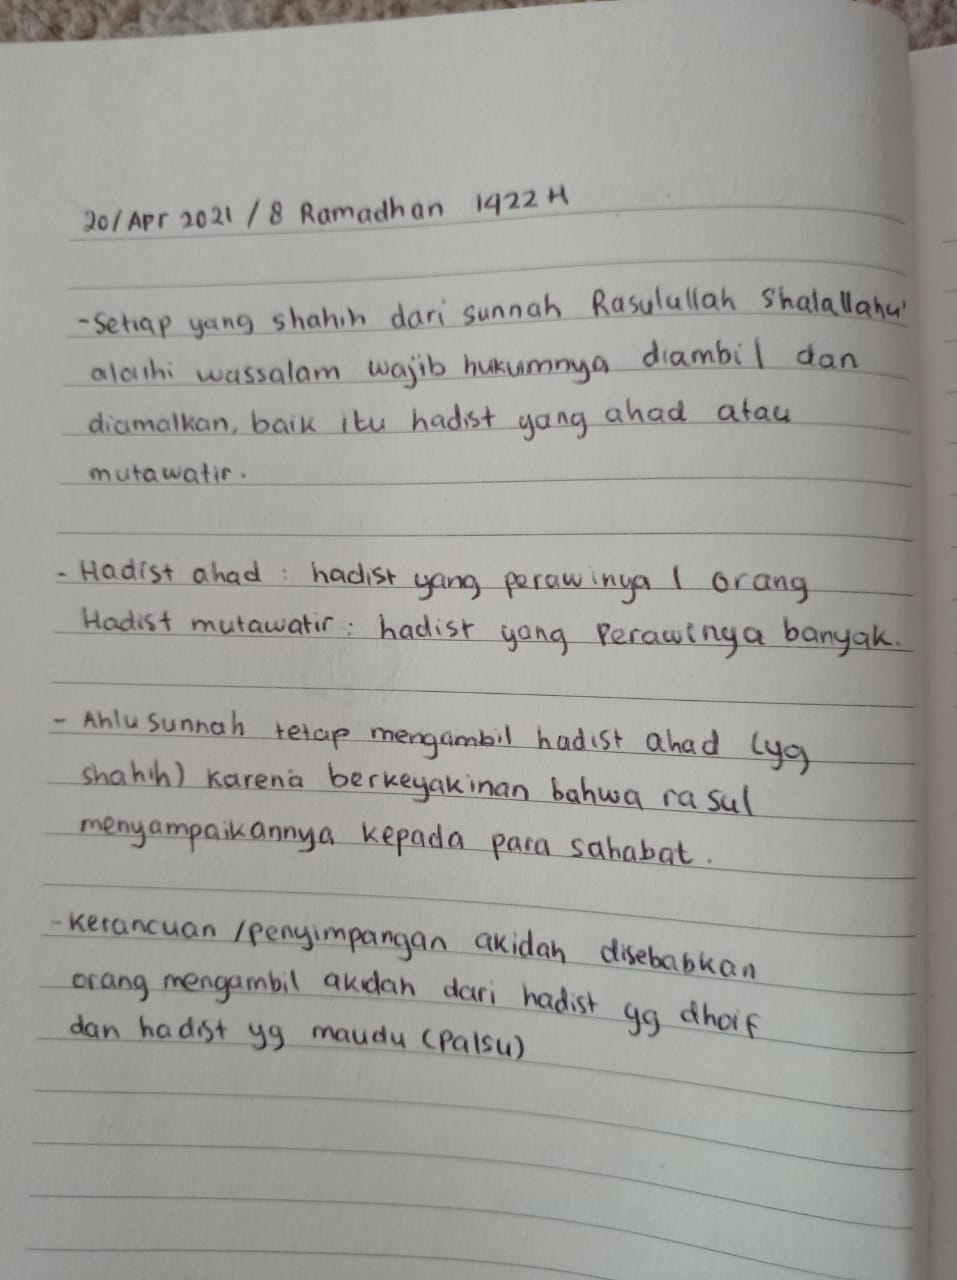 20/Apr 2021 / 8 Ramadhan 1422 H
- Setiap yang shahih dari sunnah Rasulullah Shalallahu'
alaihi wassalam wajib hukumnya diambil dan
diamalkan, baik itu hadist yang ahad atau
mutawatir.
- Hadist ahad : hadist yang perawinya 1 orang
Hadist mutawatir : hadist yang Perawinya banyak.
- Ahlu sunnah tetap mengambil hadist ahad (yg
shahih) karena berkeyakinan bahwa rasul
menyampaikannya kepada para sahabat.
- Kerancuan / penyimpangan akidah disebabkan
orang mengambil akidah dari hadist yg dhoif
dan hadist yg maudu (palsu)